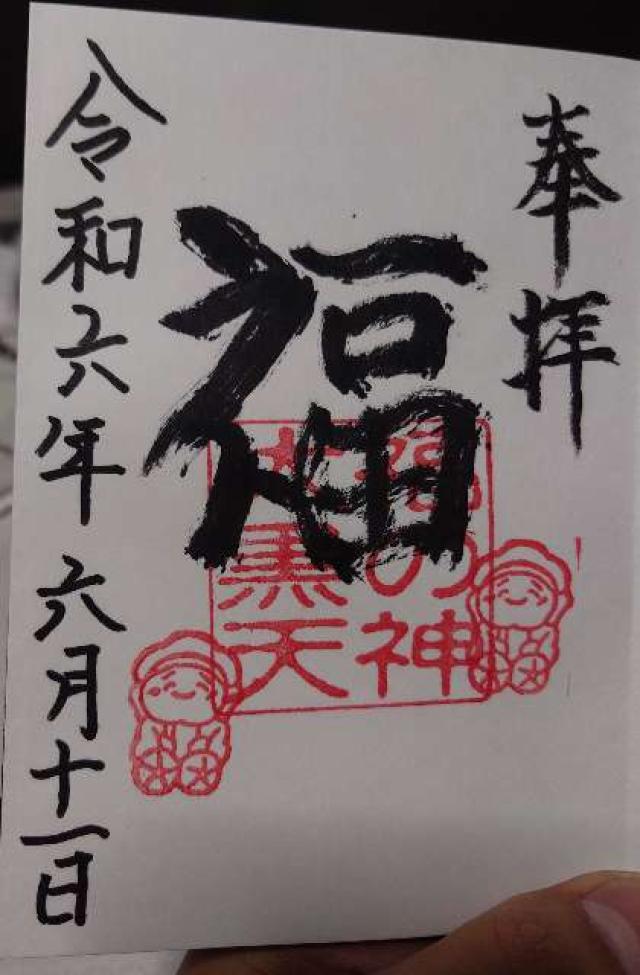 奉拝
福
福の神
大黒天
令和六年 六月十一日